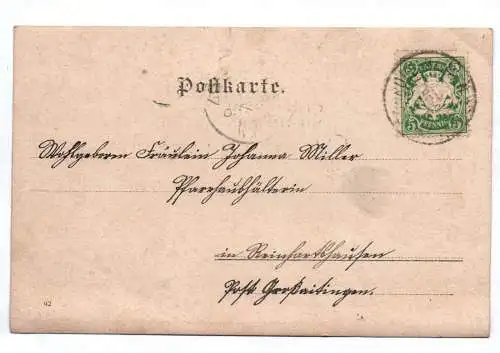 Postkarte.
BAYERN
5 5
PFENNIG
Wohlgeboren Fräulein Johanna Miller
Pfarrhaushälterin
in Reinhartshausen
Post Großaitingen.
92